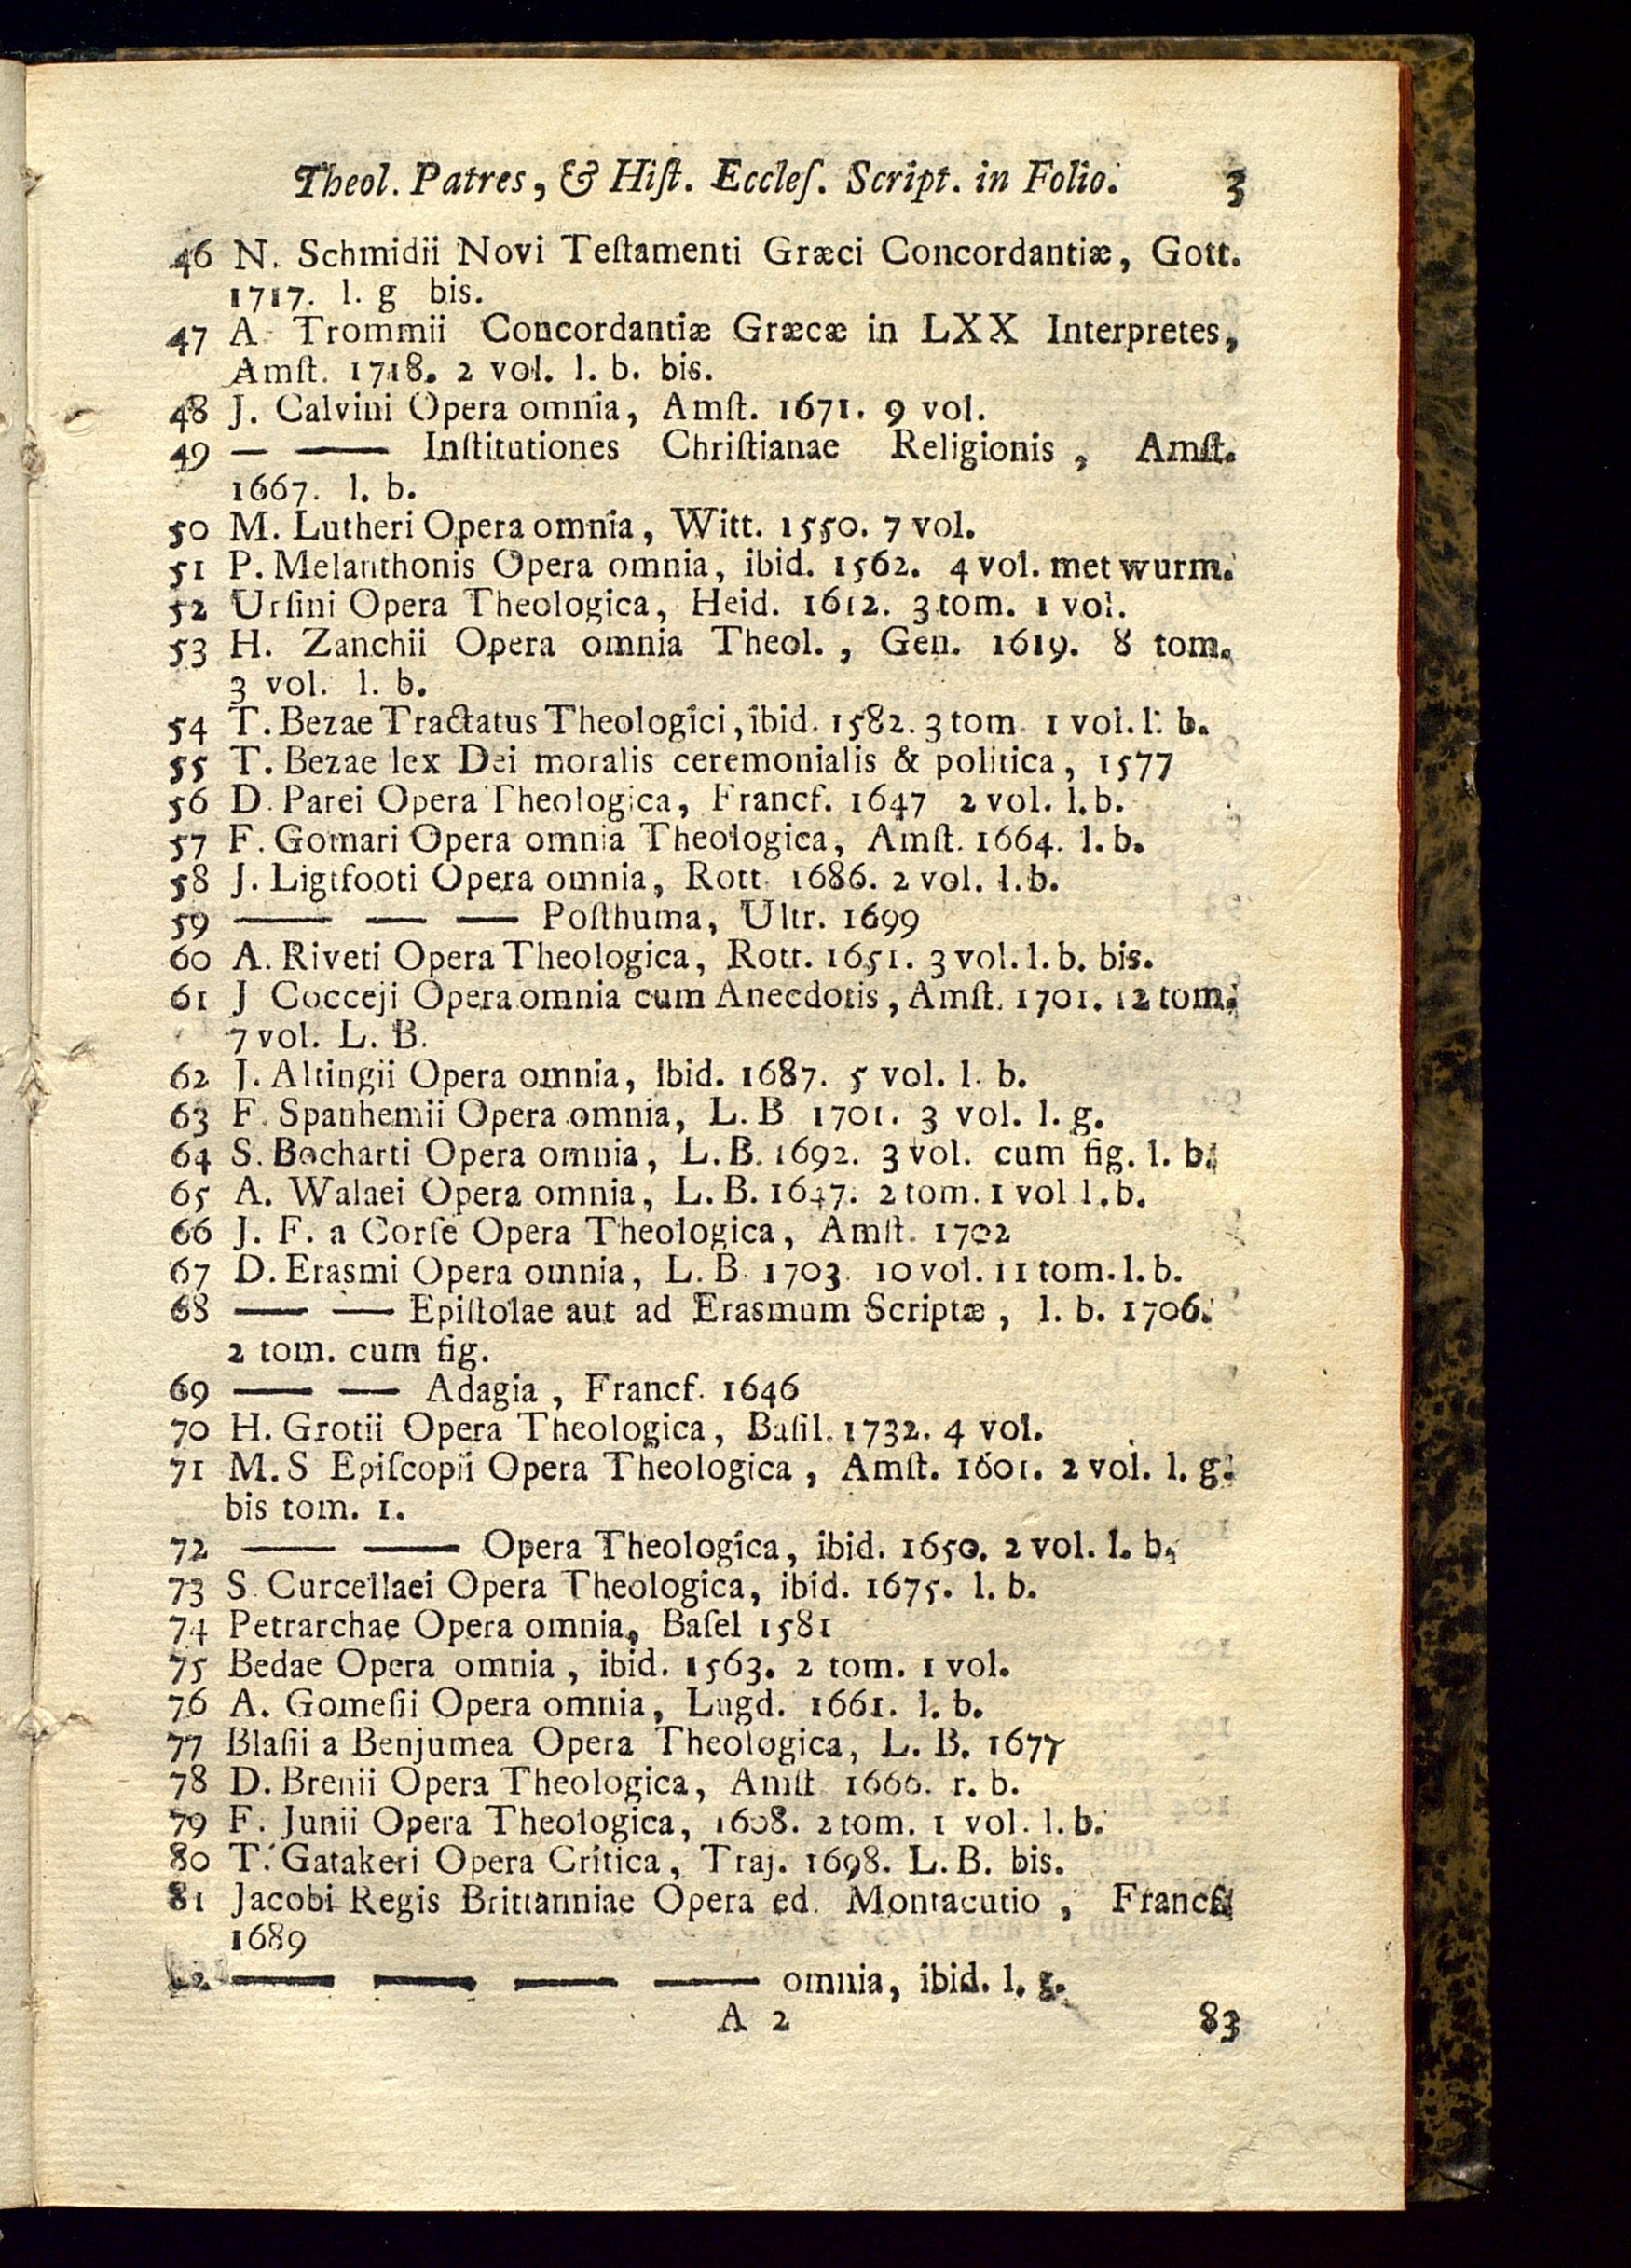 Theol. Patres, & Hiſt. Eccleſ. Script. in Folio. 3
46 N. Schmidii Novi Teſtamenti Græci Concordantiæ, Gott.
1717. l. g bis.
47 A. Trommii Concordantiæ Græcæ in LXX Interpretes,
Amſt. 1718. 2 vol. l. b. bis.
48 J. Calvini Opera omnia, Amſt. 1671. 9 vol.
49 — — Inſtitutiones Chriſtianae Religionis, Amſt.
1667. l. b.
50 M. Lutheri Opera omnia, Witt. 1550. 7 vol.
51 P. Melanthonis Opera omnia, ibid. 1562. 4 vol. met wurm.
52 Urſini Opera Theologica, Heid. 1612. 3 tom. 1 vol.
53 H. Zanchii Opera omnia Theol., Gen. 1619. 8 tom.
3 vol. l. b.
54 T. Bezae Tractatus Theologici, ibid. 1582. 3 tom. 1 vol. l. b.
55 T. Bezae lex Dei moralis ceremonialis & politica, 1577
56 D. Parei Opera Theologica, Francf. 1647 2 vol. l. b.
57 F. Gomari Opera omnia Theologica, Amſt. 1664. l. b.
58 J. Ligtfooti Opera omnia, Rott. 1686. 2 vol. l. b.
59 — — — Poſthuma, Ultr. 1699
60 A. Riveti Opera Theologica, Rott. 1651. 3 vol. l. b. bis.
61 J Cocceji Opera omnia cum Anecdotis, Amſt. 1701. 12 tom.
7 vol. L. B.
62 J. Altingii Opera omnia, ibid. 1687. 5 vol. l. b.
63 F. Spanhemii Opera omnia, L. B 1701. 3 vol. l. g.
64 S. Bocharti Opera omnia, L. B. 1692. 3 vol. cum fig. l. b.
65 A. Walaei Opera omnia, L. B. 1647. 2 tom. 1 vol l. b.
66 J. F. a Corſe Opera Theologica, Amſt. 1702
67 D. Erasmi Opera omnia, L. B. 1703. 10 vol. 11 tom. l. b.
68 — — Epiſtolae aut ad Erasmum Scriptæ, l. b. 1706.
2 tom. cum fig.
69 — — Adagia, Francf. 1646
70 H. Grotii Opera Theologica, Baſil. 1732. 4 vol.
71 M. S Epiſcopii Opera Theologica, Amſt. 1601. 2 vol. l. g.
bis tom. 1.
72 — — Opera Theologica, ibid. 1650. 2 vol. l. b.
73 S. Curcellaei Opera Theologica, ibid. 1675. l. b.
74 Petrarchae Opera omnia, Baſel 1581
75 Bedae Opera omnia, ibid. 1563. 2 tom. 1 vol.
76 A. Gomeſii Opera omnia, Lugd. 1661. l. b.
77 Blaſii a Benjumea Opera Theologica, L. B. 1677
78 D. Brenii Opera Theologica, Amſt 1666. r. b.
79 F. Junii Opera Theologica, 1608. 2 tom. 1 vol. l. b.
80 T. Gatakeri Opera Critica, Traj. 1698. L. B. bis.
81 Jacobi Regis Brittanniae Opera ed. Montacutio, Francf.
1689
82 — — — — omnia, ibid. l. g.
A 2 83